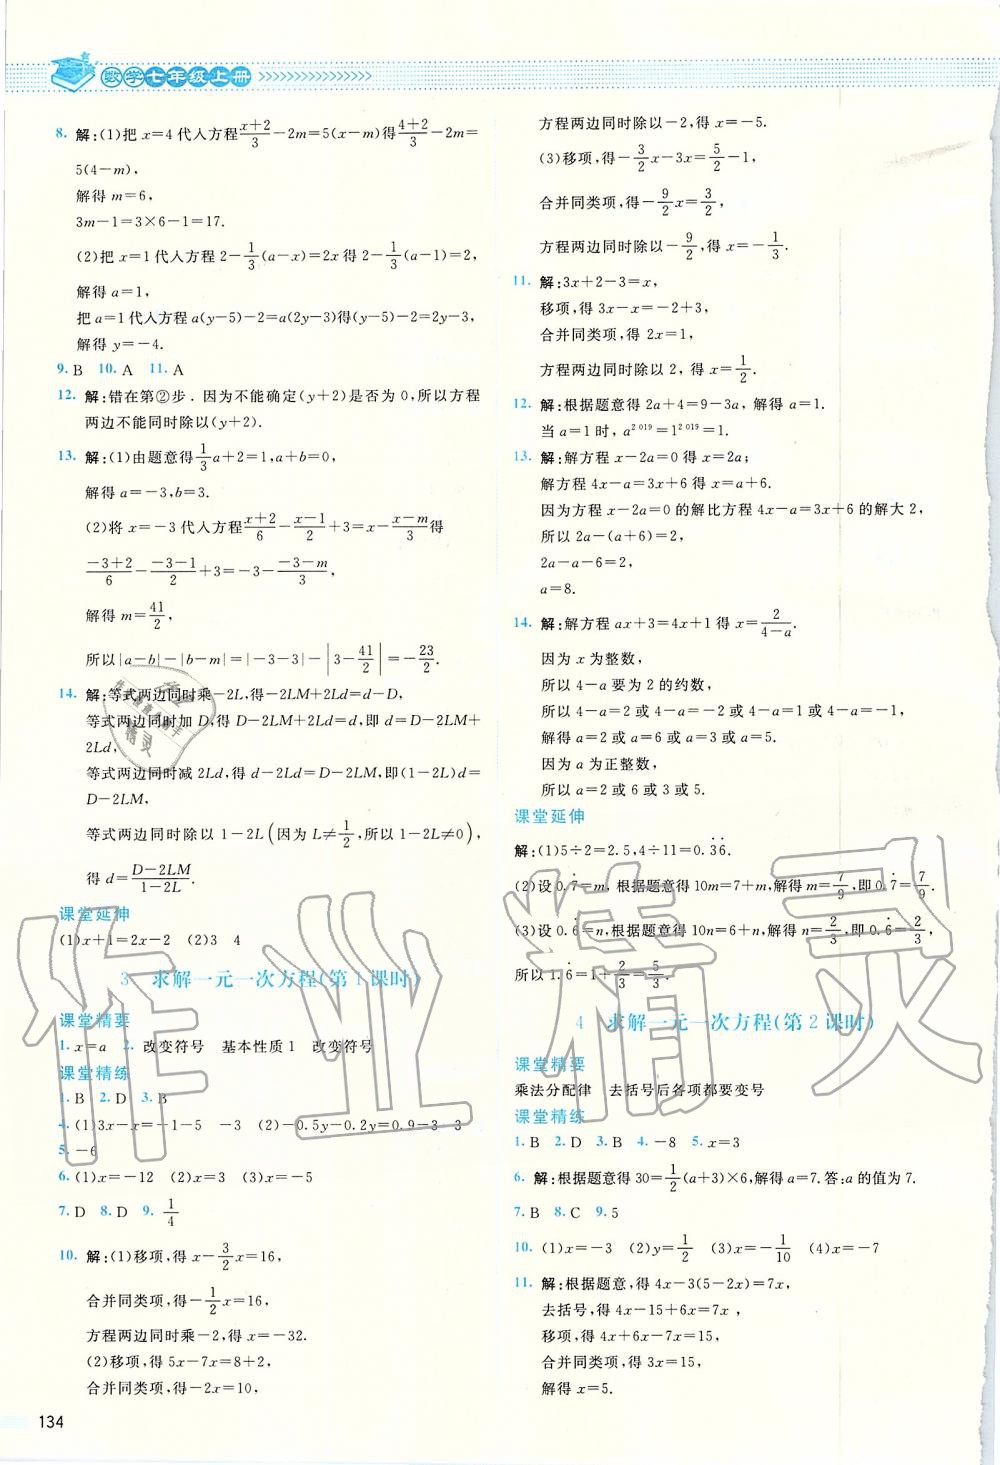 数学七年级上册
8. 解:(1)把 x=4 代入方程(x+2)/3-2m=5(x-m)得(4+2)/3-2m=
5(4-m),
解得 m=6,
3m-1=3×6-1=17.
(2)把 x=1 代入方程 2-1/3(a-x)=2x 得 2-1/3(a-1)=2,
解得 a=1,
把 a=1 代入方程 a(y-5)-2=a(2y-3)得(y-5)-2=2y-3,
解得 y=-4.
9. B 10. A 11. A
12. 解:错在第②步. 因为不能确定(y+2)是否为 0,所以方程
两边不能同时除以(y+2).
13. 解:(1)由题意得1/3a+2=1,a+b=0,
解得 a=-3,b=3.
(2)将 x=-3 代入方程(x+2)/6-(x-1)/2+3=x-(x-m)/3得
(-3+2)/6-(-3-1)/2+3=-3-(-3-m)/3,
解得 m=41/2,
所以|a-b|-|b-m|=|-3-3|-|3-41/2|=-23/2.
14. 解:等式两边同时乘-2L,得-2LM+2Ld=d-D,
等式两边同时加 D,得 D-2LM+2Ld=d,即 d=D-2LM+
2Ld,
等式两边同时减 2Ld,得 d-2Ld=D-2LM,即(1-2L)d=
D-2LM,
等式两边同时除以 1-2L(因为 L≠1/2,所以 1-2L≠0),
得 d=(D-2LM)/(1-2L).
课堂延伸
(1)x+1=2x-2 (2)3 4
3 求解一元一次方程(第 1 课时)
课堂精要
1. x=a 2. 改变符号 基本性质 1 改变符号
课堂精练
1. B 2. D 3. B
4. (1)3x-x=-1-5 -3 (2)-0.5y-0.2y=0.9-3 3
5. -6
6. (1)x=-12 (2)x=3 (3)x=-5
7. D 8. D 9. 1/4
10. 解:(1)移项,得 x-3/2x=16,
合并同类项,得-1/2x=16,
方程两边同时乘-2,得 x=-32.
(2)移项,得 5x-7x=8+2,
合并同类项,得-2x=10,
134
方程两边同时除以-2,得 x=-5.
(3)移项,得-3/2x-3x=5/2-1,
合并同类项,得-9/2x=3/2,
方程两边同时除以-9/2,得 x=-1/3.
11. 解:3x+2-3=x,
移项,得 3x-x=-2+3,
合并同类项,得 2x=1,
方程两边同时除以 2,得 x=1/2.
12. 解:根据题意得 2a+4=9-3a, 解得 a=1.
当 a=1 时, a^2 019=1^2 019=1.
13. 解:解方程 x-2a=0 得 x=2a;
解方程 4x-a=3x+6 得 x=a+6.
因为方程 x-2a=0 的解比方程 4x-a=3x+6 的解大 2,
所以 2a-(a+6)=2,
2a-a-6=2,
a=8.
14. 解:解方程 ax+3=4x+1 得 x=2/(4-a).
因为 x 为整数,
所以 4-a 要为 2 的约数,
所以 4-a=2 或 4-a=-2 或 4-a=1 或 4-a=-1,
解得 a=2 或 a=6 或 a=3 或 a=5.
因为 a 为正整数,
所以 a=2 或 6 或 3 或 5.
课堂延伸
解:(1)5÷2=2.5,4÷11=0.3̇6̇.
(2)设 0.7̇=m, 根据题意得 10m=7+m,解得 m=7/9,即 0.7̇=7/9.
(3)设 0.6̇=n,根据题意得 10n=6+n,解得 n=2/3,即 0.6̇=2/3,
所以 1.6̇=1+2/3=5/3.
4 求解一元一次方程(第 2 课时)
课堂精要
乘法分配律 去括号后各项都要变号
课堂精练
1. B 2. D 3. B 4. -8 5. x=3
6. 解:根据题意得 30=1/2(a+3)×6,解得 a=7.答:a 的值为 7.
7. B 8. C 9. 5
10. (1)x=-3 (2)y=1/2 (3)x=-1/10 (4)x=-7
11. 解:根据题意,得 4x-3(5-2x)=7x,
去括号,得 4x-15+6x=7x,
移项,得 4x+6x-7x=15,
合并同类项,得 3x=15,
解得 x=5.
作业精灵